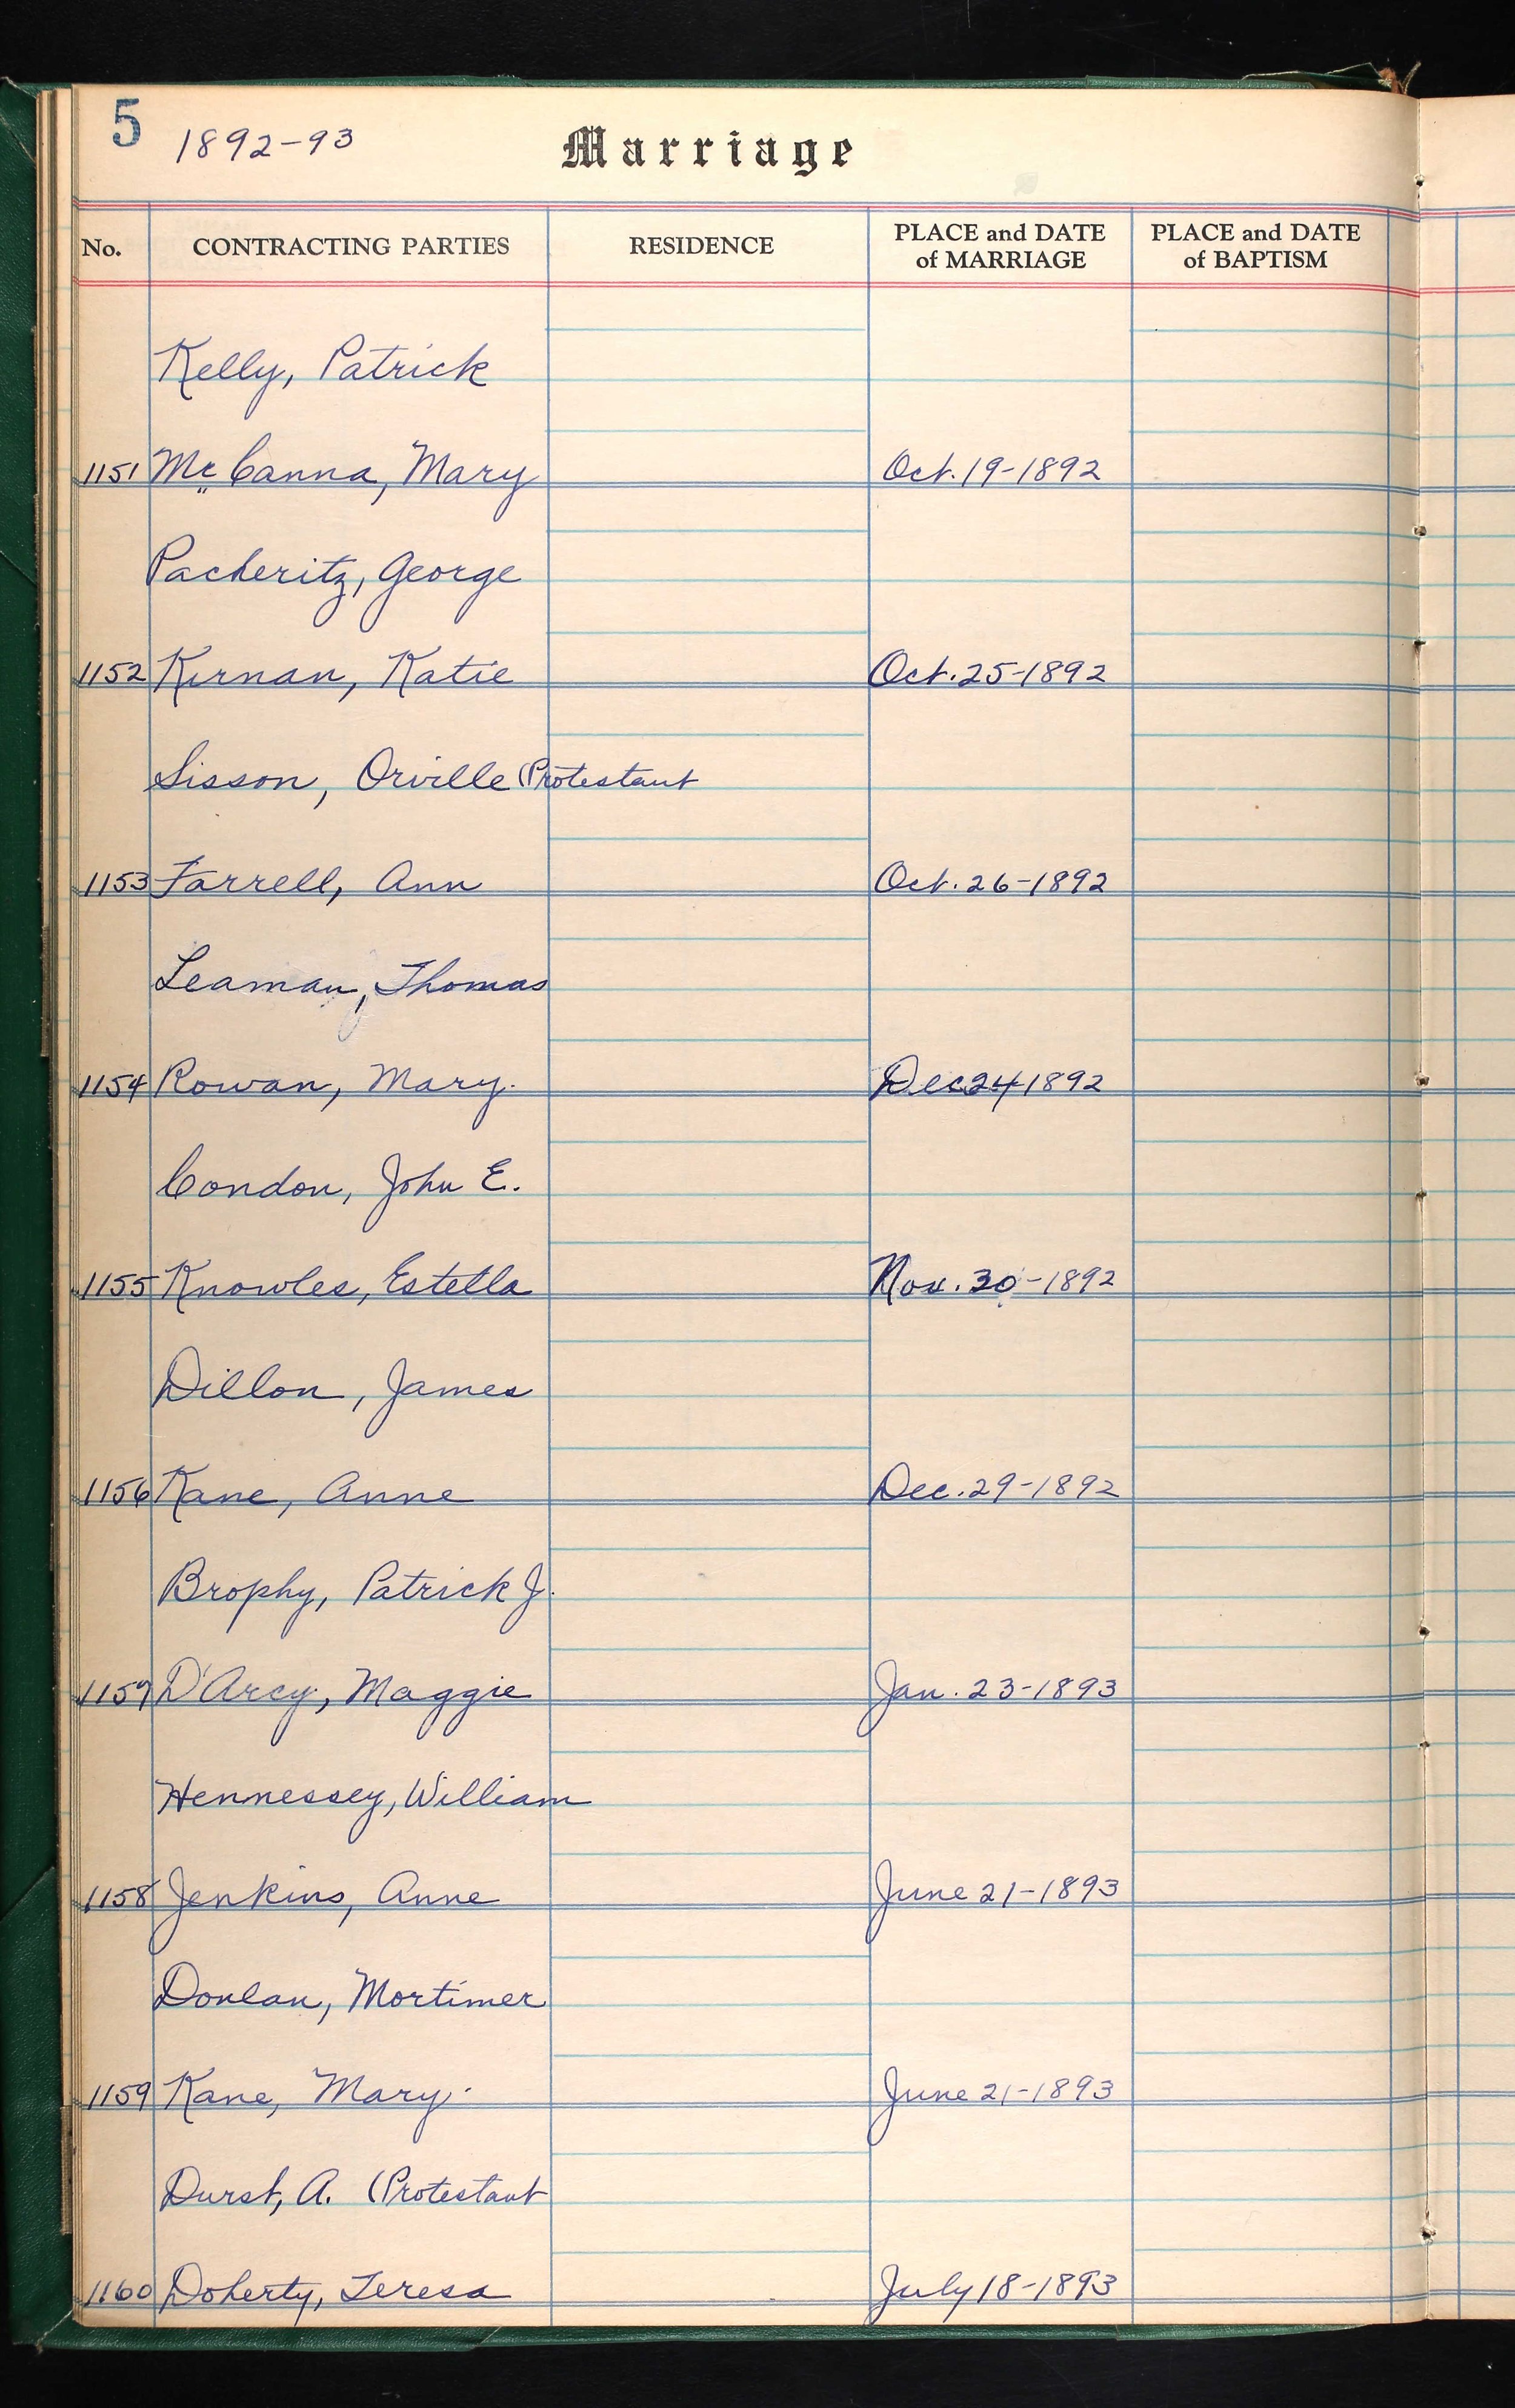 5 1892-93 Marriage
No. CONTRACTING PARTIES RESIDENCE PLACE and DATE of MARRIAGE PLACE and DATE of BAPTISM
Kelly, Patrick
1151 McCanna, Mary Oct. 19-1892
Pacheritz, George
1152 Kernan, Katie Oct. 25-1892
Sisson, Orville (Protestant
1153 Farrell, Ann Oct. 26-1892
Leaman, Thomas
1154 Rowan, Mary. Dec 24 1892
Condon, John E.
1155 Knowles, Estella Nov. 30-1892
Dillon, James
1156 Kane, Anne Dec. 29-1892
Brophy, Patrick J.
1157 D'Arcy, Maggie Jan. 23-1893
Hennessey, William
1158 Jenkins, Anne June 21-1893
Donlan, Mortimer
1159 Kane, Mary. June 21-1893
Durst, A. (Protestant
1160 Doherty, Teresa July 18-1893